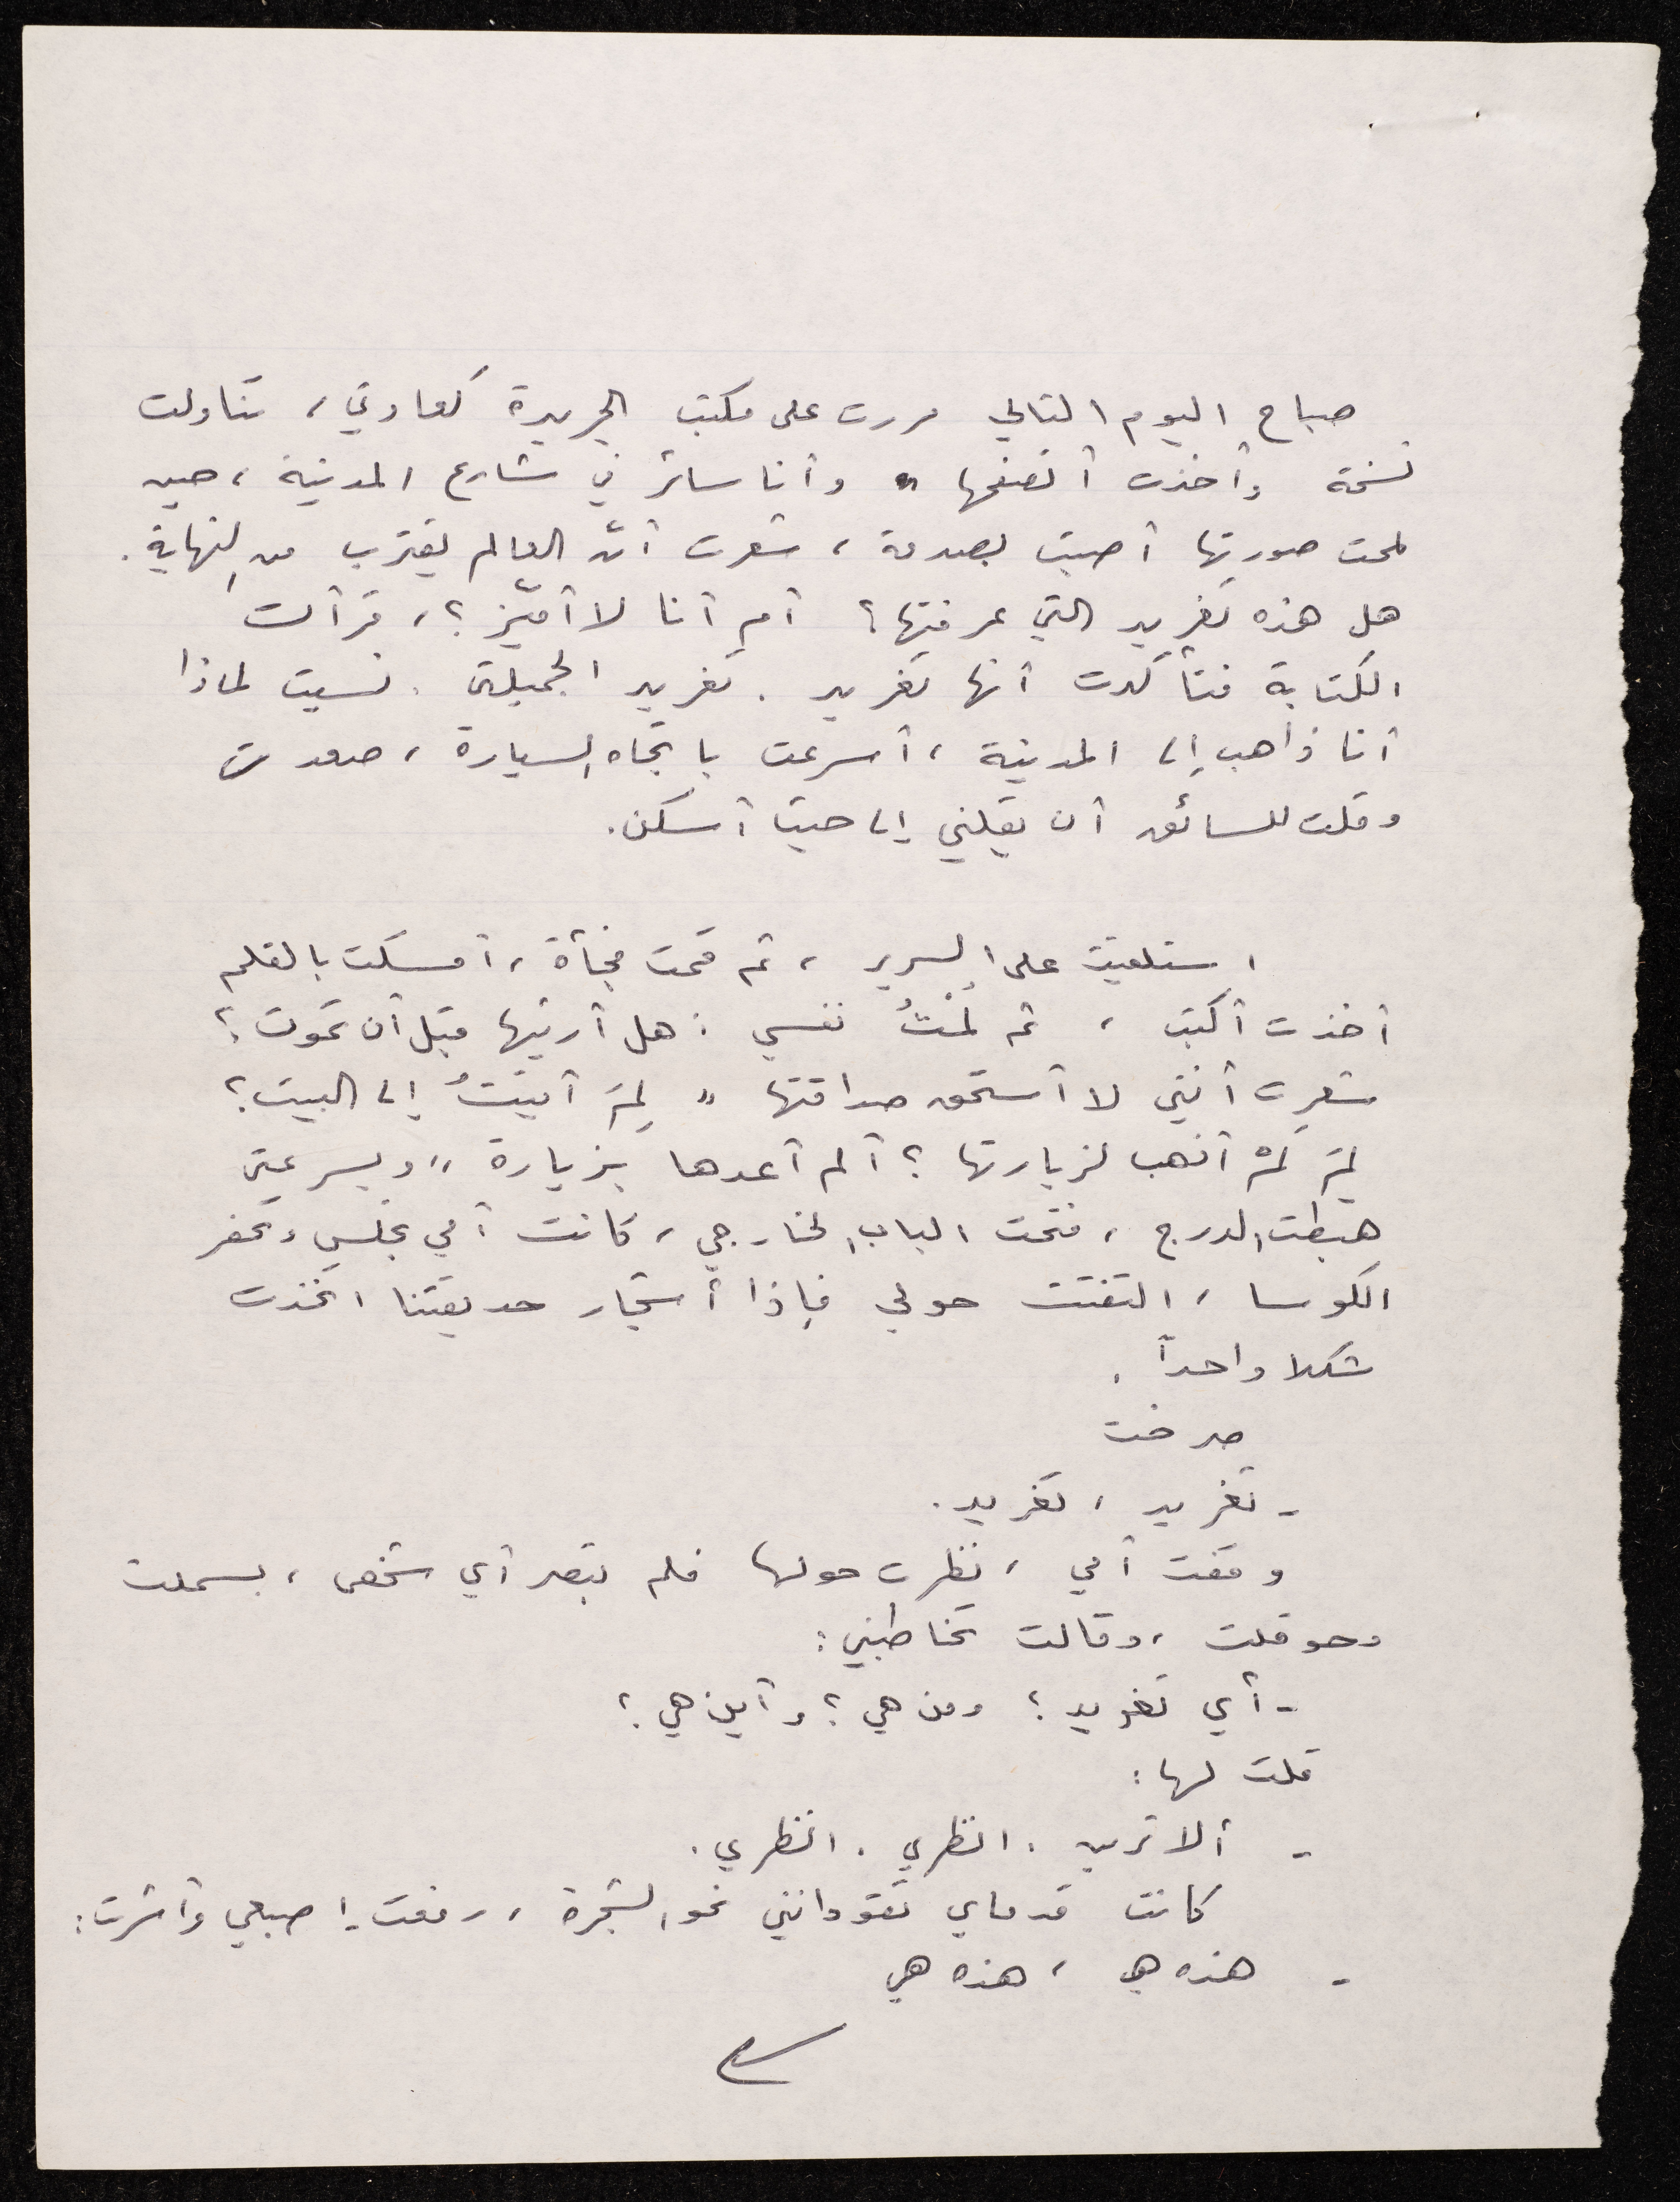 صباح اليوم التالي مررت على مكتب الجريدة كعادتي، تناولت
نسخة وأخذت أتصفحها " وأنا سائر في شارع المدينة، حين
لمحت صورتها أصبت بصدمة، شعرت أنّ العالم يقترب من النهاية.
هل هذه تغريد التي عرفتها؟ أم أنا لا أميّز؟، قرأت
الكتابة فتأكدت أنها تغريد. تغريد الجميلة. نسيت لماذا
أنا ذاهب إلى المدينة، أسرعت باتجاه السيارة، صعدت
وقلت للسائق أن يقلني إلى حيث أسكن.
استلقيت على السرير، ثم قمت فجأة، أمسكت بالقلم
أخذت أكتب، ثم لُمْتُ نفسي: هل أرثيها قبل أن تموت؟
شعرت أنني لا أستحق صداقتها " لِمَ أتيتُ إلى البيت؟
لِمَ لَمْ أذهب لزيارتها؟ ألم أعدها بزيارة " وبسرعة
هبطت الدرج، فتحت الباب الخارجي، كانت أمي تجلس وتحفر
الكوسا، التفتت حولي فإذا أشجار حديقتنا اتخذت
شكلا واحداً.
صرخت
- تغريد، تغريد.
وقفت أمي، نظرت حولها فلم تبصر أي شخص، بسملت
وحوقلت، وقالت تخاطبني:
- أي تغريد؟ ومن هي؟ وأين هي؟
قلت لها:
- ألا ترين. انظري. انظري.
كانت قدماي تقودانني نحو الشجرة، رفعت إصبعي وأشرت:
- هذه هي، هذه هي